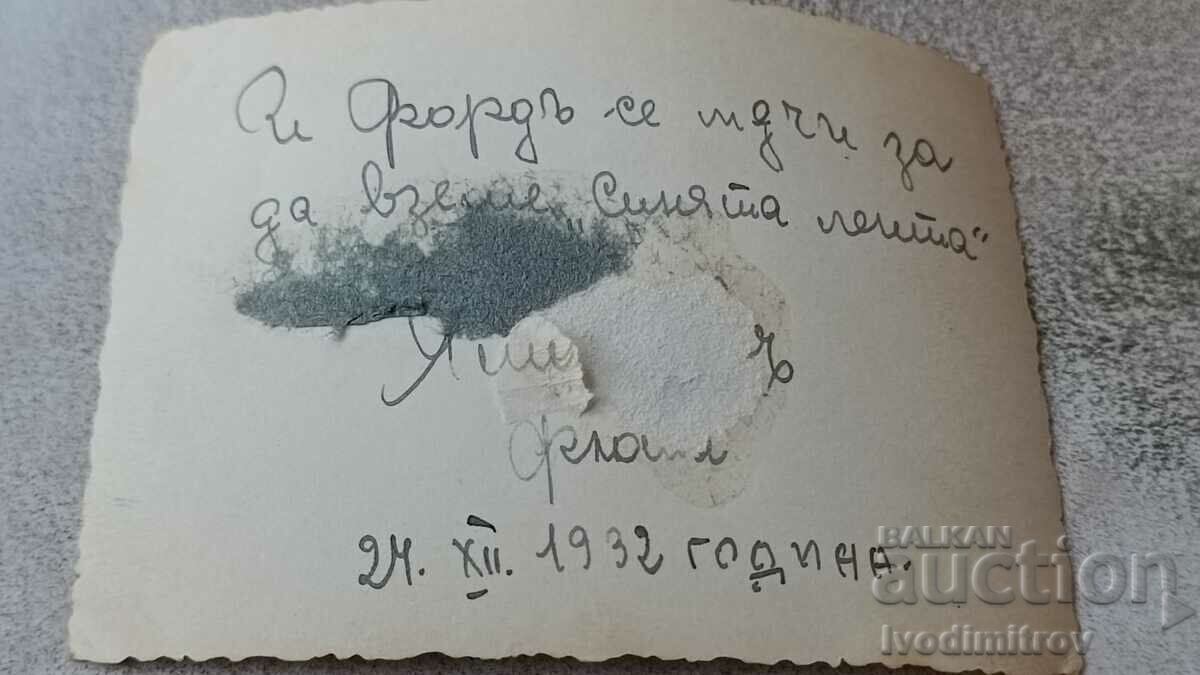 И Фордъ се мъчи за
да вземе „Синята лента"
24. XII. 1932 година.
BALKAN
auction
Ivodimitrov